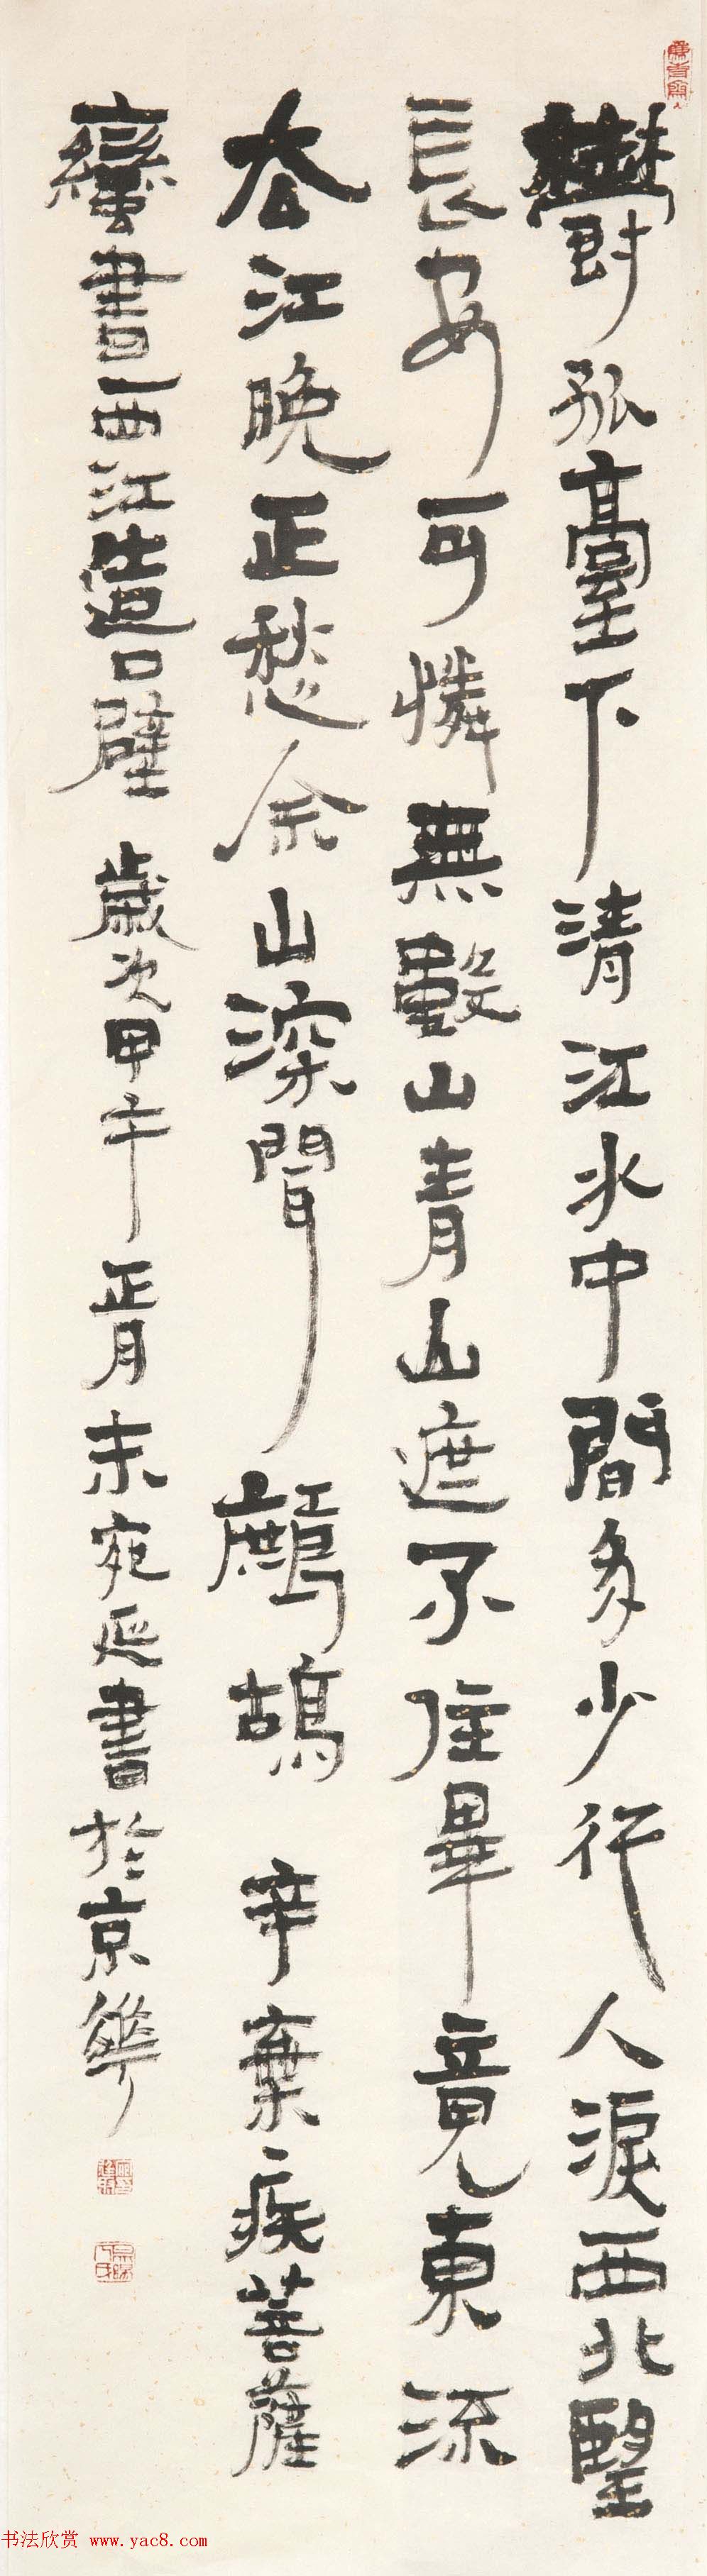 鬱孤臺下清江水中間多少行人淚西北望
長安可憐無數山青山遮不住畢竟東流
去江晚正愁余山深聞鷓鴣 辛棄疾菩薩
蠻書西江造口壁 歲次甲午正月末宛延書於京華
书法欣赏 www.yac8.com